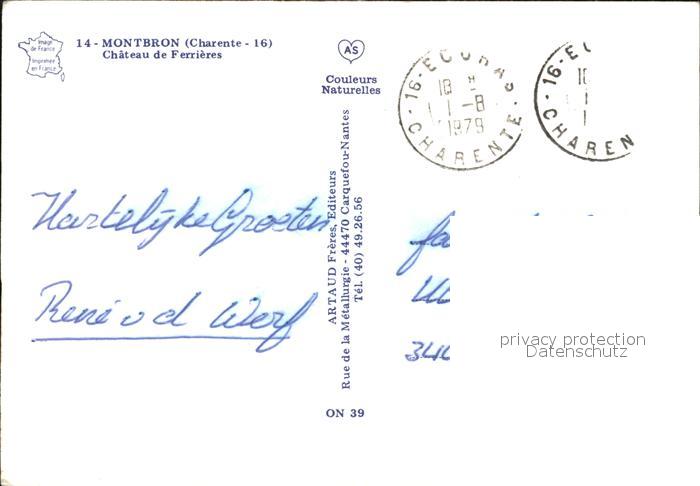 Image
de France
Imprimée
en France
14 - MONTBRON (Charente - 16)
Château de Ferrières
AS
Couleurs
Naturelles
16 - ECURAS
18 H
1 - 8
1979
CHARENTE
16 - E
CHAREN
Hartelijke Groeten
René v d Werf
ARTAUD Frères, Editeurs
Rue de la Métallurgie - 44470 Carquefou-Nantes
Tél. (40) 49.26.56
fa
privacy protection
Datenschutz
ON 39